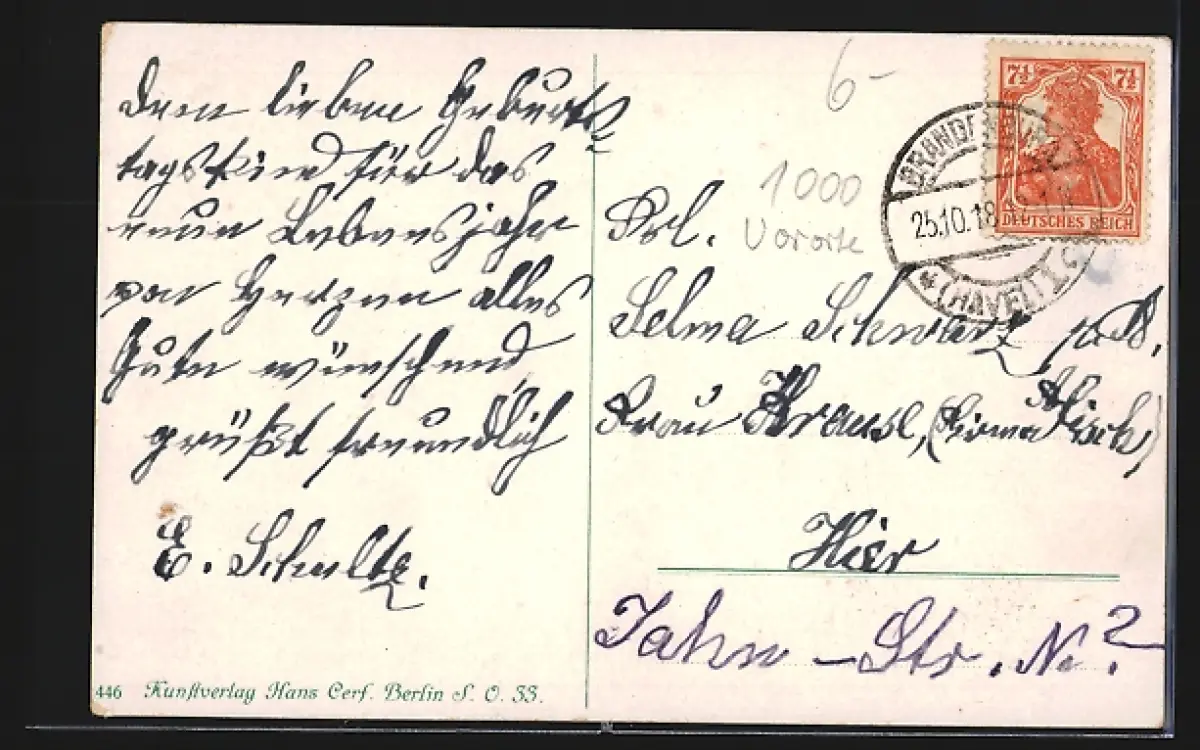 Dem lieben Geburts-
tagskind für das
neue Lebensjahr
von Herzen alles
Gute wünschend
grüßt freundlich
E. Schultz.
446 Kunstverlag Hans Cerf. Berlin S. O. 33.
6-
1000
Vororte
7½ 7½
DEUTSCHES REICH
BRANDENBURG
25.10.18
* (HAVEL) 1 c
Frl.
Selma Schwarz p. A.
Frau Krause, (Firma Tisch)
Hier
Jahn-Str. No. ?